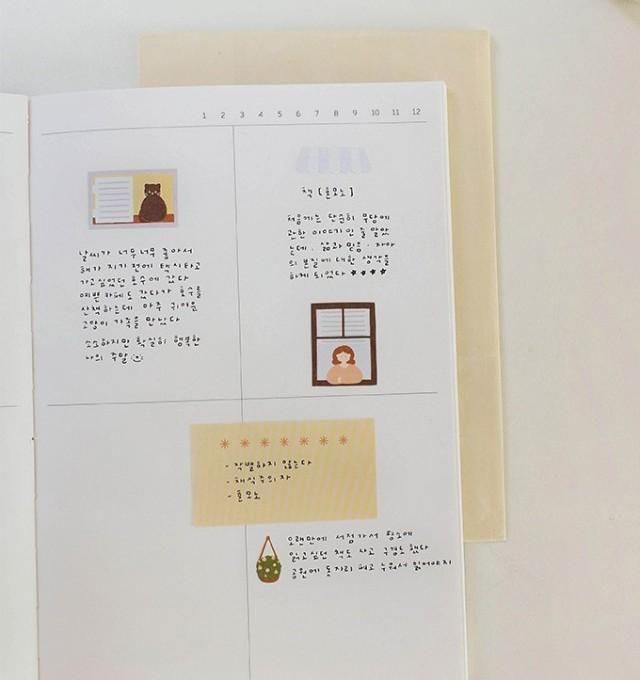 1 2 3 4 5 6 7 8 9 10 11 12
날씨가 너무너무 좋아서
해가 지기 전에 택시타고
가고싶었던 호수에 갔다
예쁜카페도 갔다가 호수를
산책하는데 아주 귀여운
고양이 가족을 만났다
소소하지만 확실히 행복한
나의 주말
책 [혼모노]
처음에는 단순히 무당에
관한 이야기인 줄 알았
는데, 삶과 믿음, 자아
의 본질에 대한 생각을
하게 되었다 ★★★★
- 작별하지 않는다
- 채식주의자
- 혼모노
오랜만에 서점가서 평소에
읽고싶던 책도 사고 구경도 했다
공원에 돗자리 펴고 누워서 읽어야지